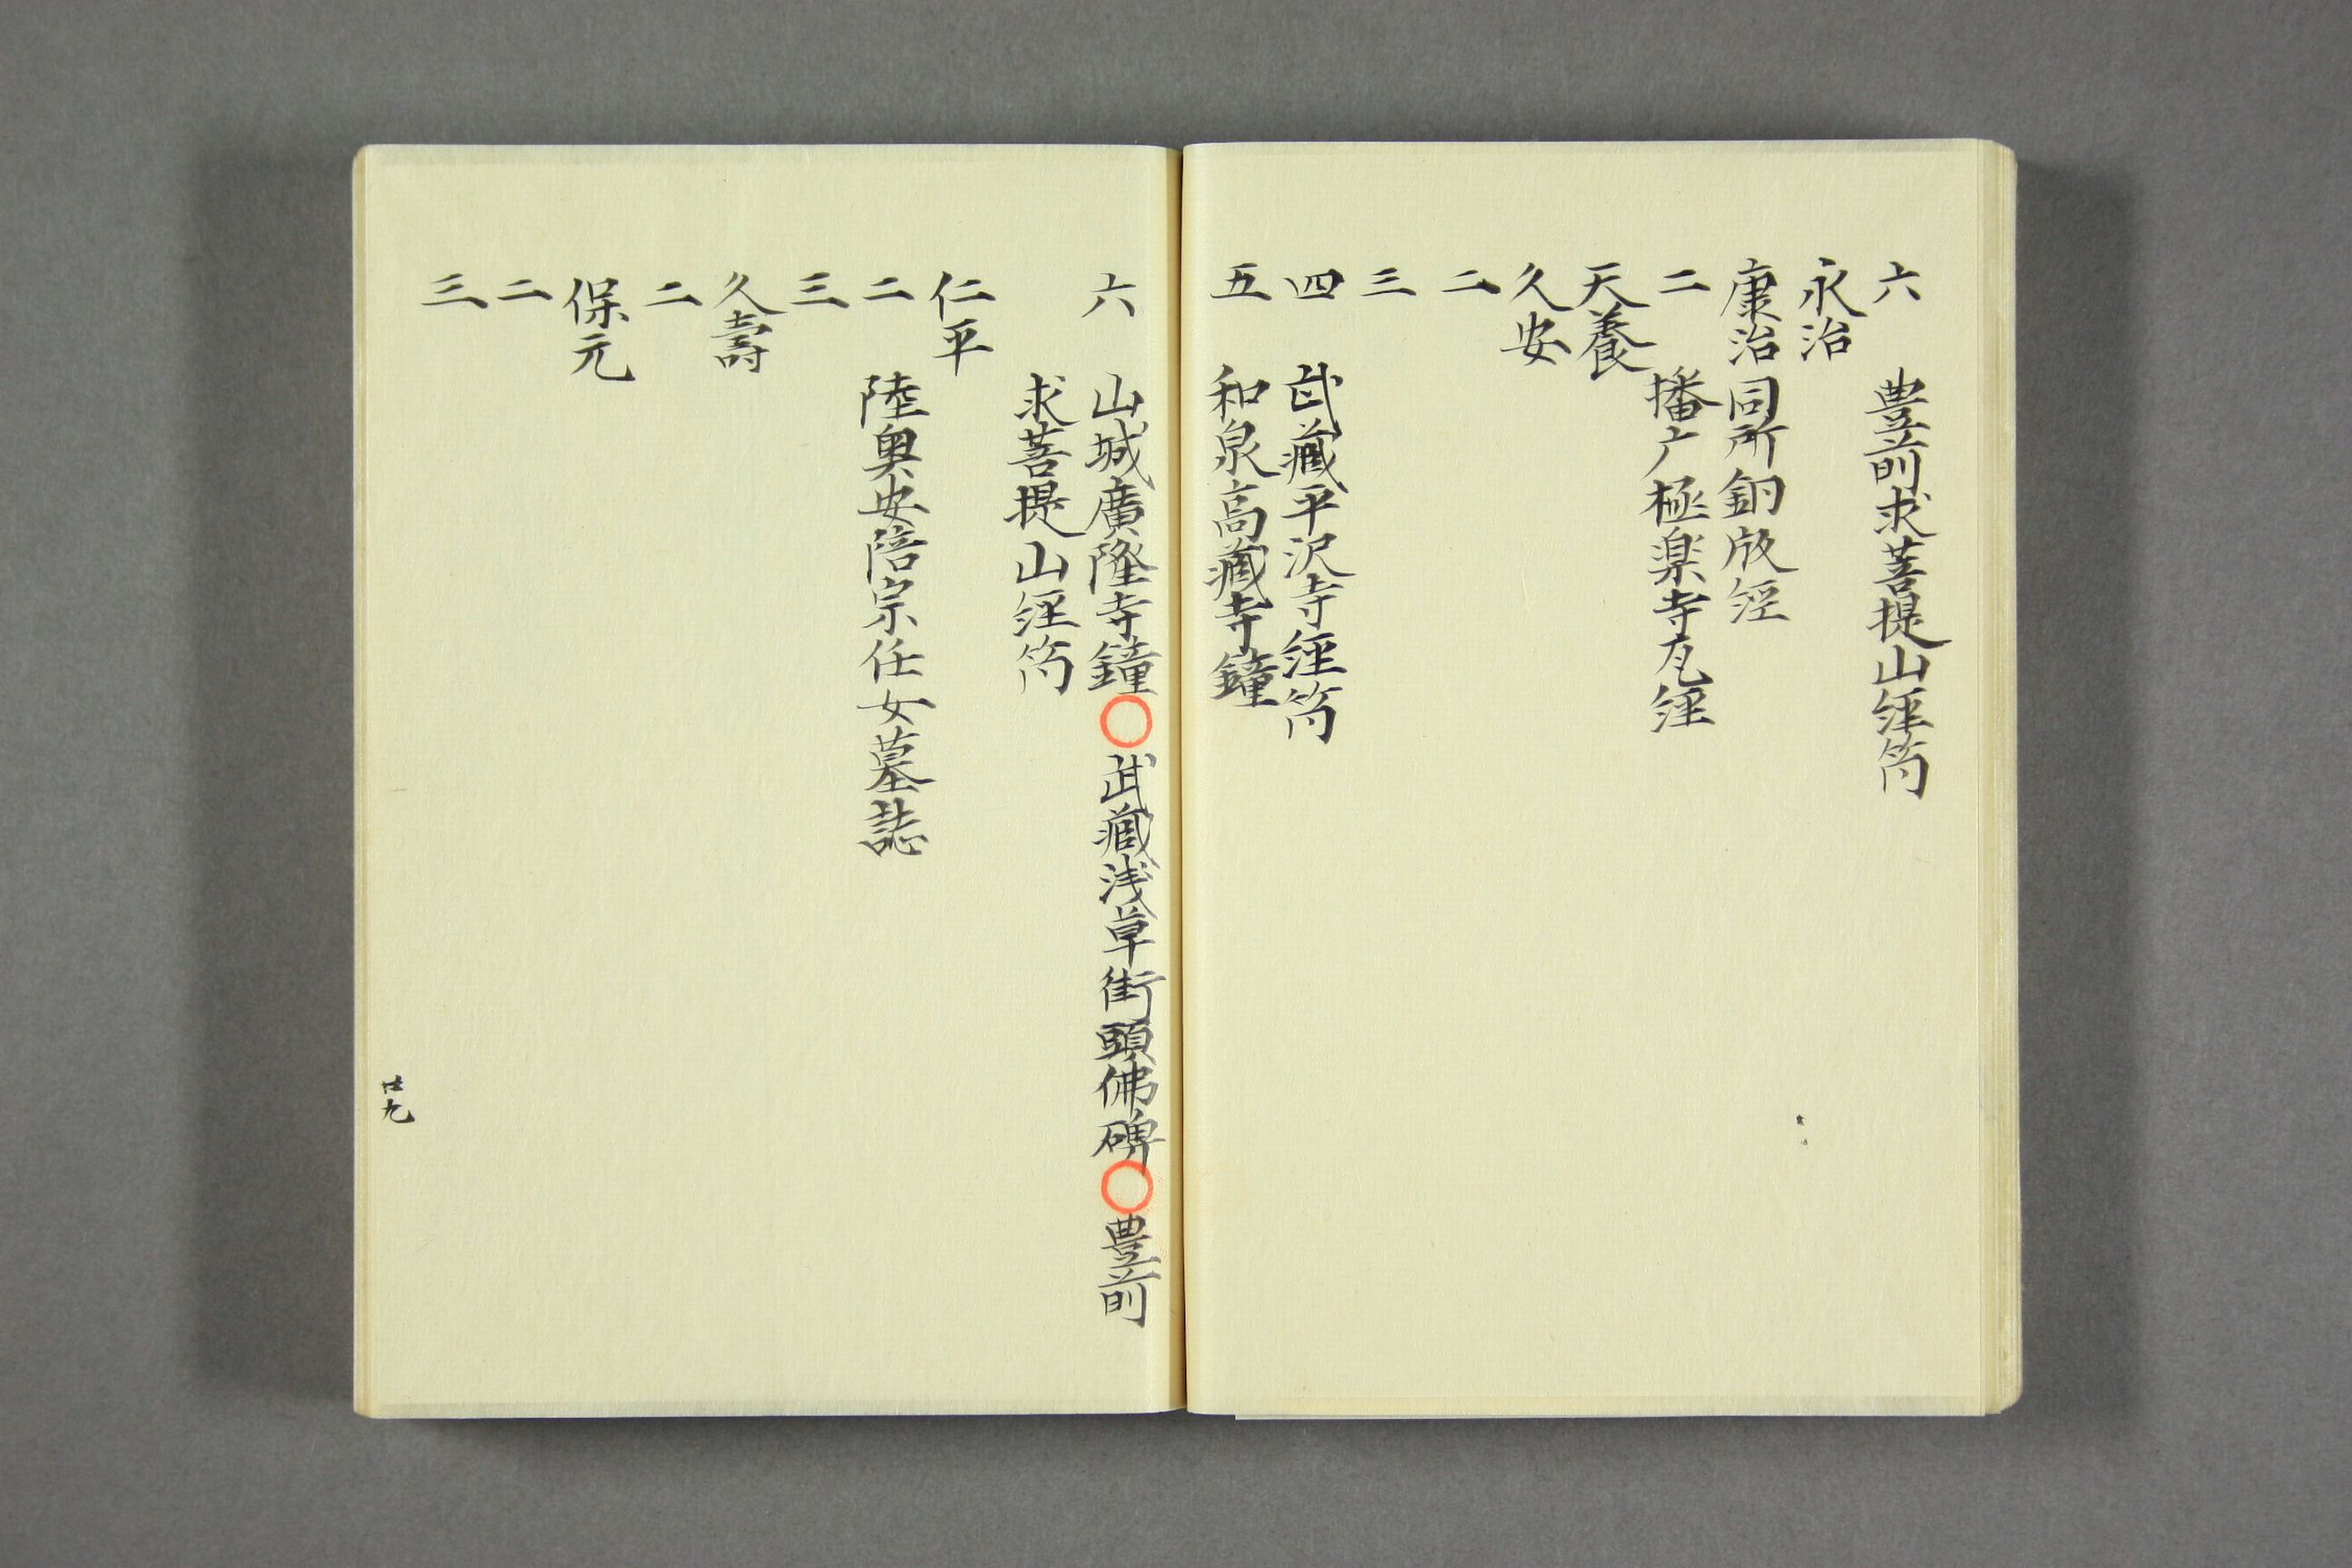 六　豊前求菩提山経筒
永治
康治　同所銅版経
二　播广極楽寺瓦経
天養
久安
二
三
四　武蔵平沢寺経筒
五　和泉高蔵寺鐘
六　山城廣隆寺鐘○武蔵浅草街頭佛碑○豊前
求菩提山経筒
仁平
二　陸奥安陪宗任女墓誌
三
久壽
二
保元
二
三
廿九